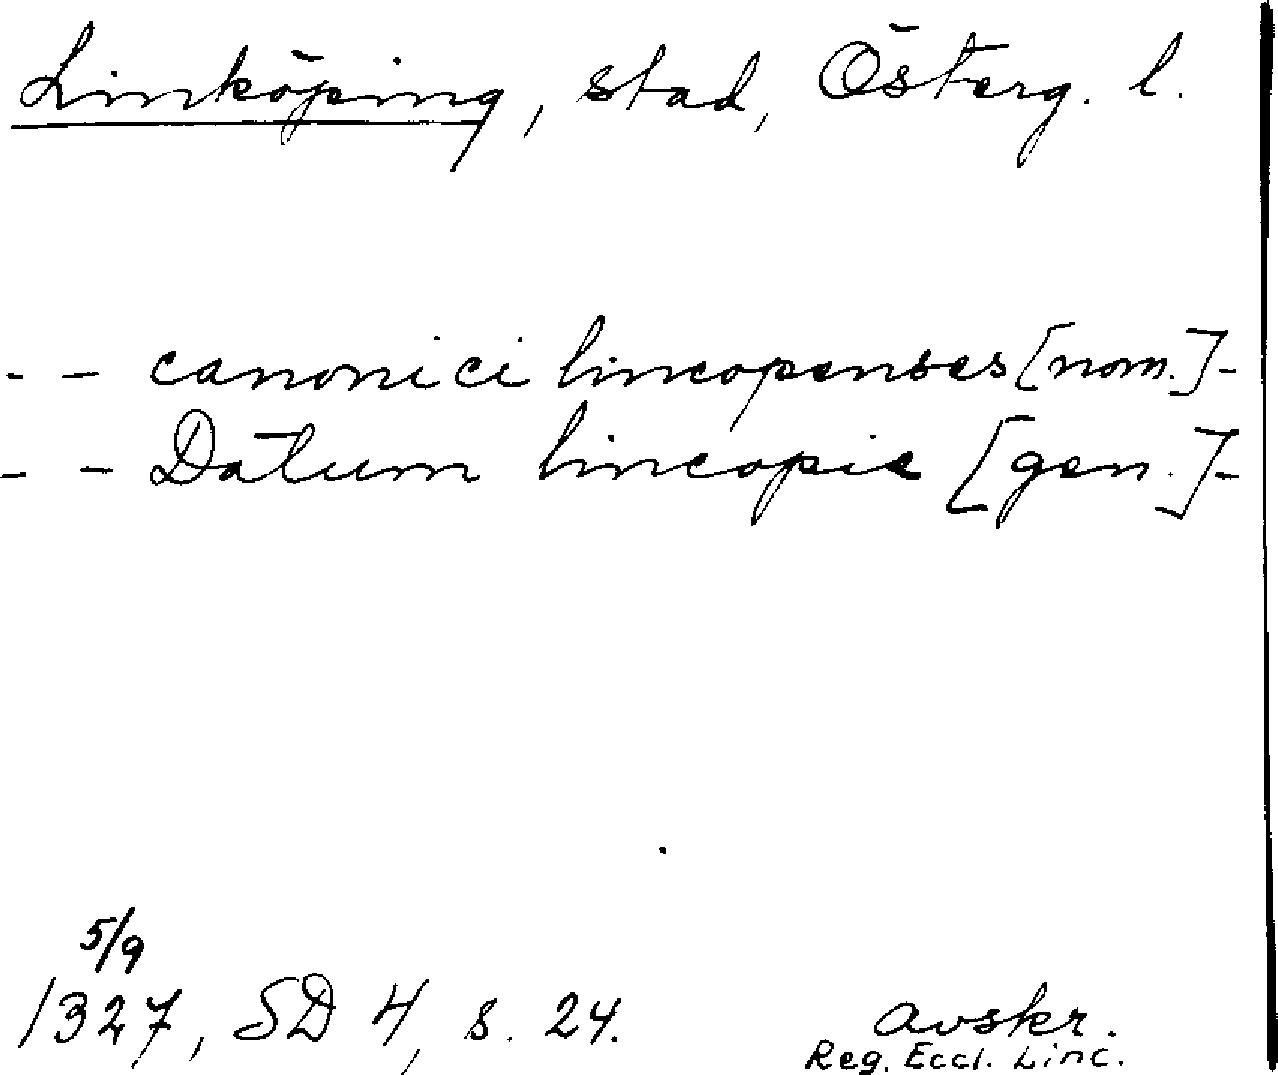 Linköping, stad, Österg. l.
- - canonici lincopenses [nom.] -
- - Datum lincopie [gen.] -
5/9
1327, SD 4, s. 24. avskr.
Reg. Eccl. Linc.